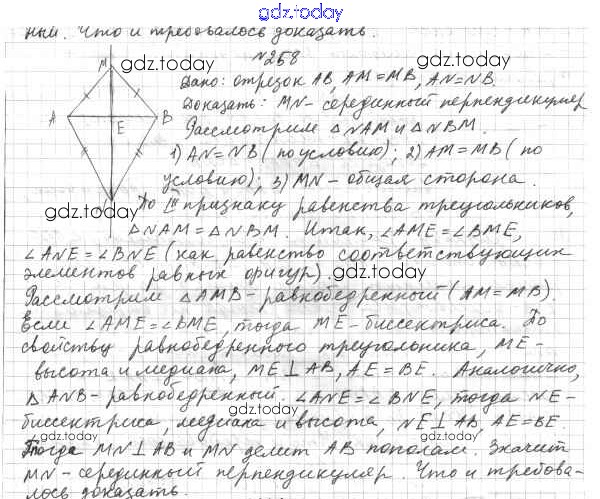 gdz.today
ный. Что и требовалось доказать.
№258
gdz.today
M
Дано: отрезок AB, AM=MB, AN=NB
Доказать: MN-серединный перпендикуляр
A E B
Рассмотрим △NAM и △NBM.
1) AN=NB (по условию); 2) AM=MB (по
условию); 3) MN-общая сторона.
gdz.today
По III признаку равенства треугольников,
△NAM=△NBM. Итак, ∠AME=∠BME,
∠ANE=∠BNE (как равенство соответствующих
элементов равных фигур).
gdz.today
Рассмотрим △AMB-равнобедренный (AM=MB).
Если ∠AME=∠BME, тогда ME-биссектриса. По
gdz.today gdz.today
свойству равнобедренного треугольника, ME-
высота и медиана, ME⊥AB, AE=BE. Аналогично,
△ANB-равнобедренный. ∠ANE=∠BNE, тогда NE-
gdz.today gdz.today
биссектриса, медиана и высота, NE⊥AB, AE=BE.
Тогда MN⊥AB и MN делит AB пополам. Значит
gdz.today gdz.today
MN-серединный перпендикуляр. Что и требова-
лось доказать.
gdz.today